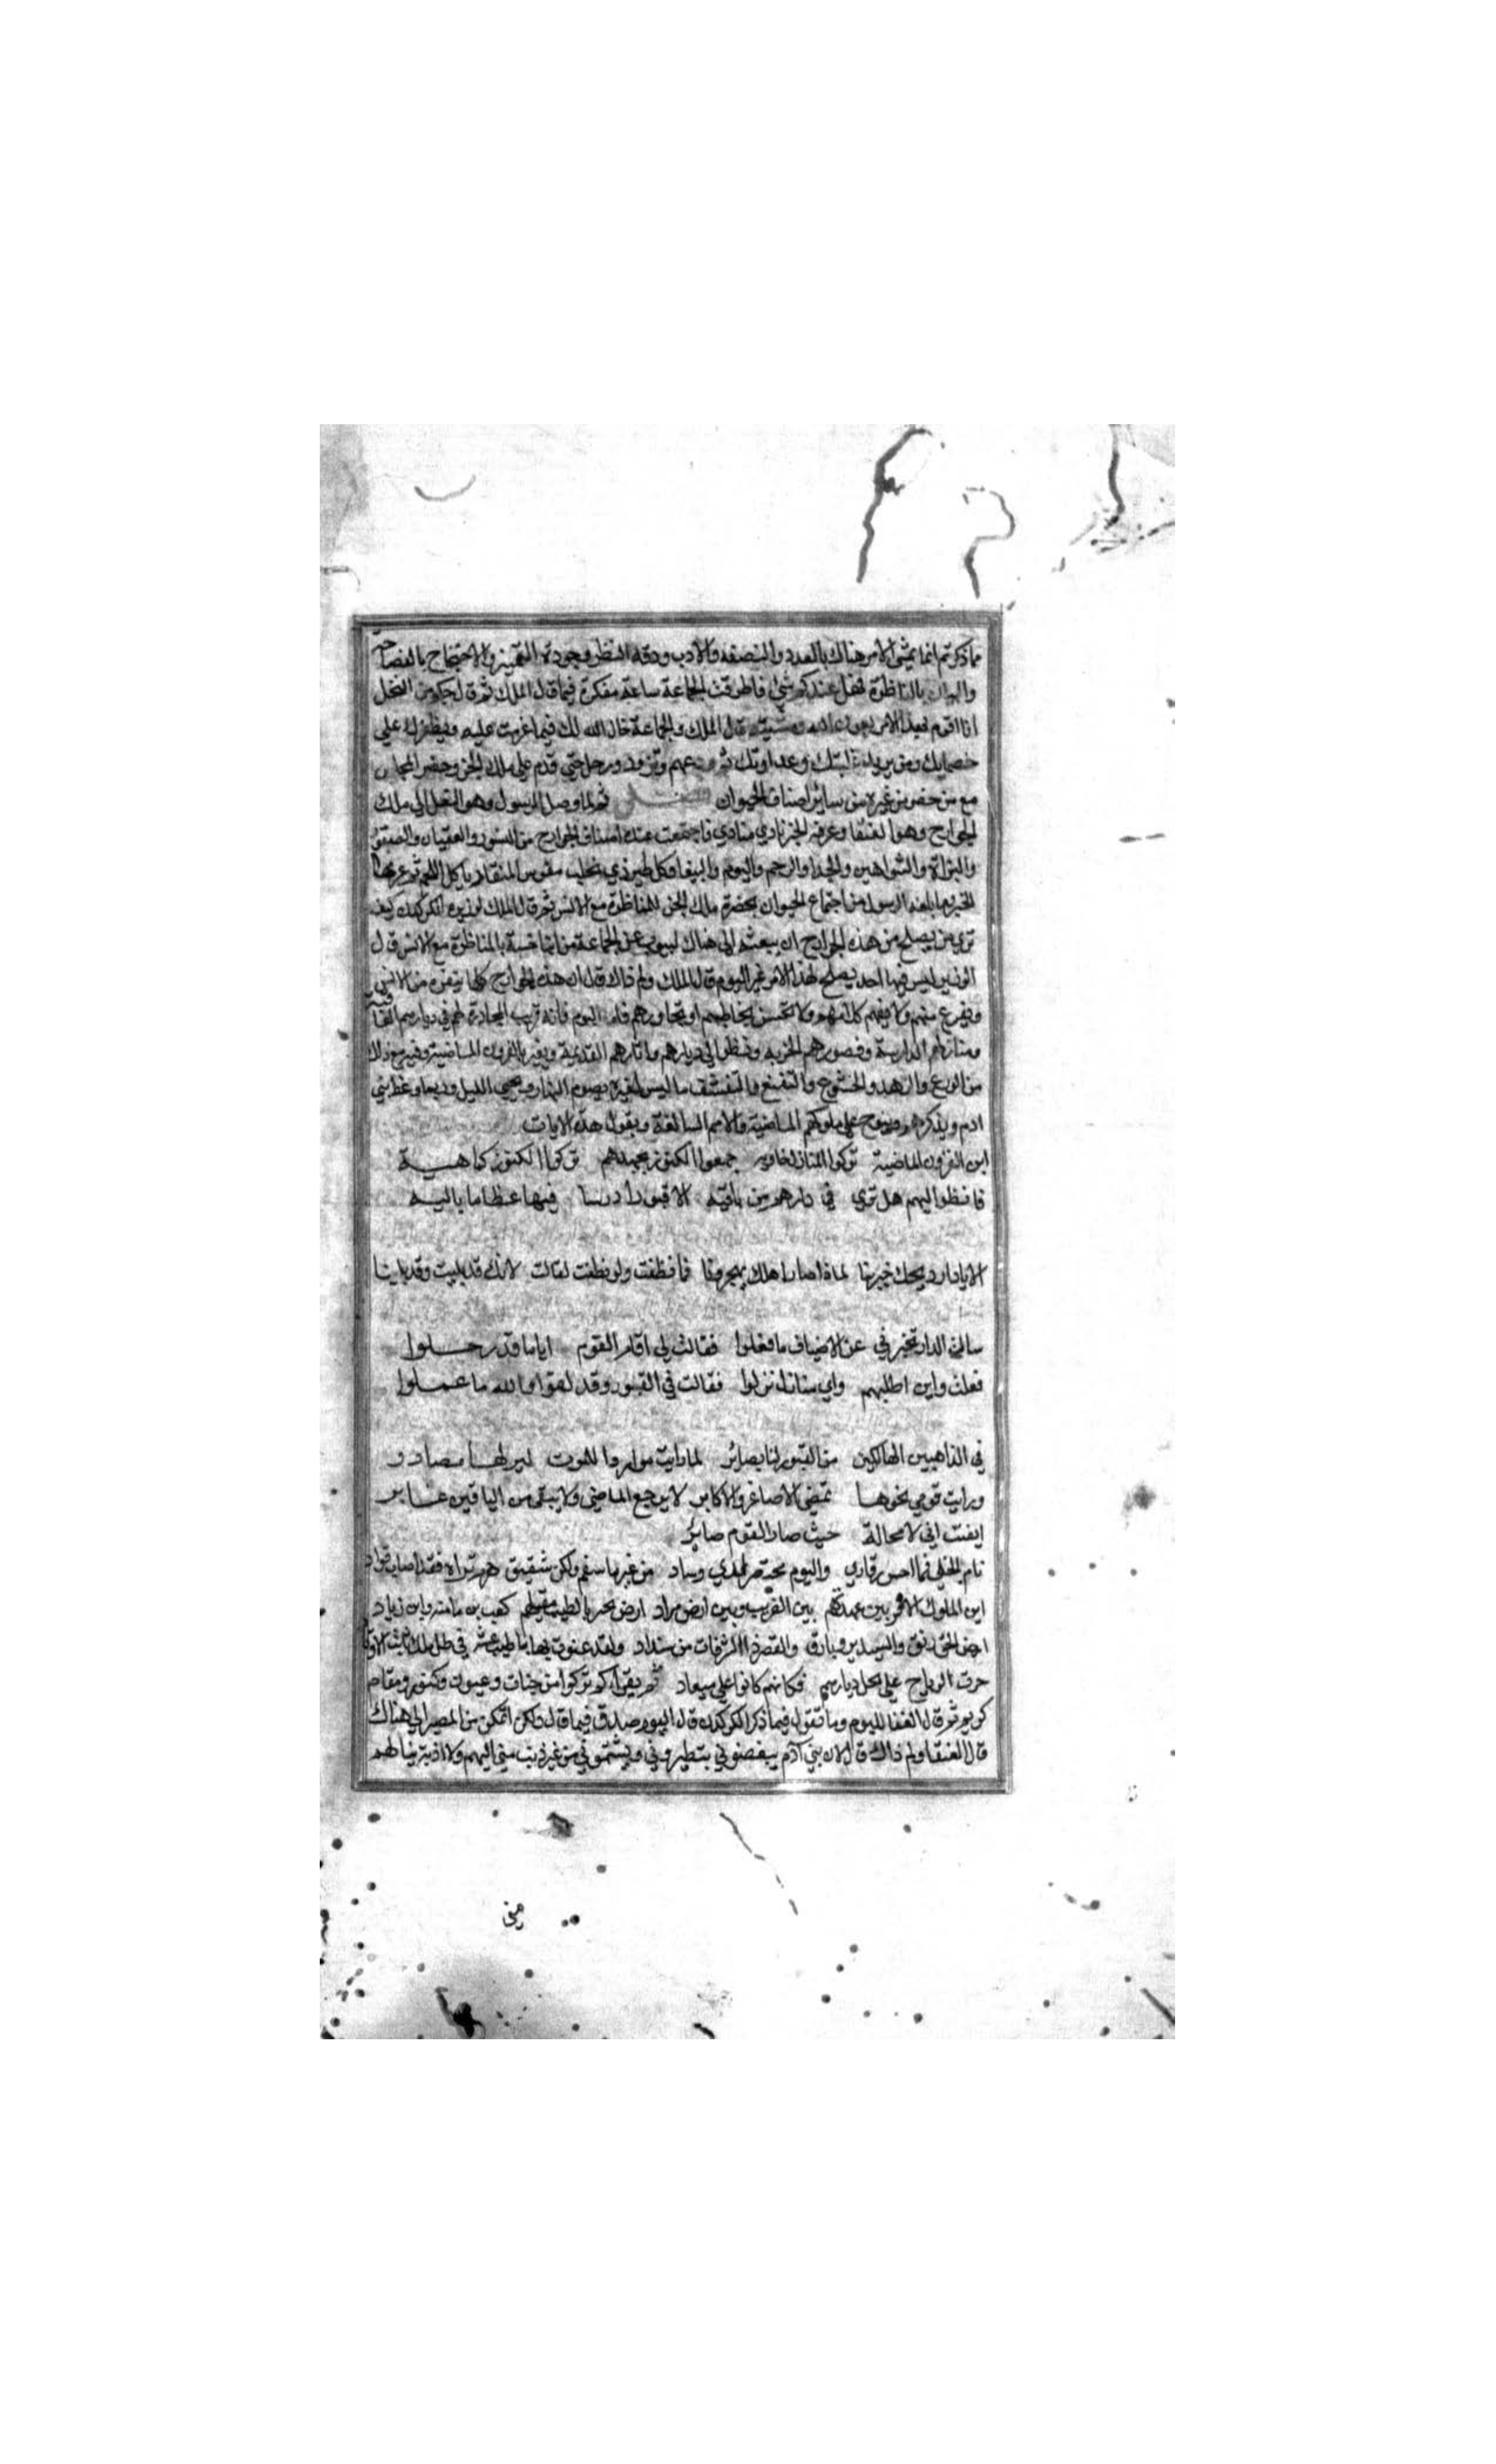 مما ذكرتم انما يمشي الامر هناك بالعدد والنصفه والادب ودقه النظر وجودة التمييز والاحتجاج بالفصاحة
والبيان بالمناظرة فهل عندكم شي فاطرقت الجماعة ساعة مفكرة فيما قال الملك ثم قال حكيم من النحل
انا اقوم بهذا الامر بعون الله ومشيته قال الملك والجماعة خار الله لك فيما عزمت عليه ويظفرك علي
خصمايك ومن يريد غلبتك وعداوتك ثم ودعهم وتزود ورحل حتي قدم علي ملك الجن وحضر المجلس
مع من حضر من غيره من ساير اصناف الحيوان فصل ثم لما وصل الرسول وهو البغل الي ملك
الجوارح وهو العنقا وعرفه الخبر نادي منادي فاجتمعت عنده اصناف الجوارح من النسور والعقبان والصقور
والبزاة والشواهين والحدا والرخم والبوم والببغا وكل طير ذي مخلب مقوس المنقار ياكل اللحم ثم عرفها
الخبر بما بلغه الرسول من اجتماع الحيوان بحضرة ملك الجن للمناظرة مع الانس ثم قال الملك لوزيره الكركدن كيف
تري من يصلح من هذه الجوارح ان يبعثه الي هناك لينوب عن الجماعة من ابنا جنسه بالمناظرة مع الانس قال
الوزير ليس فيها احد يصلح لهذا الامر غير البوم قال الملك ولم ذاك قال ان هذه الجوارح كلها ينفره من الانس
ويفزع منهم ولا يفهم كلامهم ولا يحسن يخاطبهم او يحاورهم فاما البوم فانه قريب المجاورة لهم في ديارهم العافية
ومنازلهم الدارسة وقصورهم الخربه وينظر الي ديارهم واثارهم القديمة ويعتبر بالقرون الماضية وفيه مع ذلك
من الورع والزهد والخشوع والتقنع والتقشف ما ليس لغيره يصوم النهار ويحيي الليل وربما وعظ بني
ادم ويذكرهم وينوح علي ملوكهم الماضية والامم السالفة ويقول هذه الابيات
اين القرون الماضية تركوا المنازل خاويه جمعوا الكنوز بجهدهم تركوا الكنوز كما هيــة
فانظر اليهم هل تري في دارهم من باقيه الا قبورا درسا فيها عظاما باليــه
الا يا دار ويحك خبرينا لماذا صار اهلك يهجرونا فما نطقت ولو نطقت لقالت لانك قد بليت وقد بلينا
سالت الدار تخبرني عن الاضياف ما فعلوا فقالت لي اقام القوم اياما وقد رحـــلوا
فقلت واين اطلبهم واي منازل نزلوا فقالت في القبور وقد لقوا والله ما عمــلوا
في الذاهبين الهالكين من القبور لنا بصائر لما رايت مواردا للموت ليس لهــا مصادر
ورايت قومي نحوهــا تمضي الاصاغر والاكابر لا يرجع الماضي ولا يبقي من الباقين غــابر
ايقنت اني لا محالة حيث صار القوم صاير
نام الخلي فما احس رقادي والهم محتضر لدي وساد من غير ما سقم ولكن شفيق
اين الملوك بين القرب وبين ارض مراد ارض كعب بن مامة وابن زياد
ارض الخورنق والسدير وبارق والقصر ذا الشرفات من سنداد ولقد غنوا فيها باطيب عيش في ظل ملك ثابت الاوتاد
جرت الرياح علي محل ديارهم فكانهم كانوا علي ميعاد ثم يقرا كم تركوا من جنات وعيون وكنوز ومقام
كريم ثم قال العنقا للبوم وما تقول فيما ذكر الكركدن قال البوم صدق فيما قال ولكن لا اتمكن من المصير الي هناك
قال العنقا ولم ذاك قال لان بني آدم يبغضوني يتطيروني ويشتموني من غير ذنب مني اليهم ولا اذية ينالهم
مني